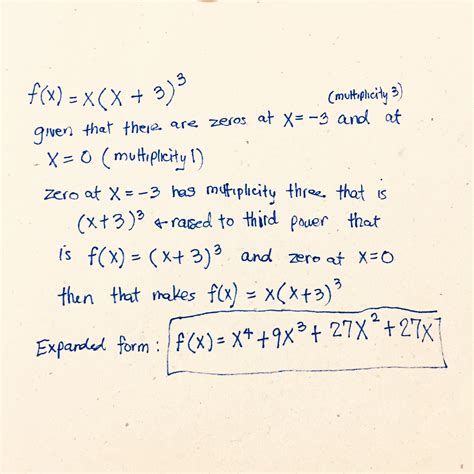 f(x) = x(x + 3)³
(multiplicity 3)
given that there are zeros at x = -3 and at
x = 0 (multiplicity 1)
zero at x = -3 has multiplicity three that is
(x+3)³ ← raised to third power that
is f(x) = (x+3)³ and zero at x=0
then that makes f(x) = x(x+3)³
Expanded form : f(x) = x⁴ + 9x³ + 27x² + 27x